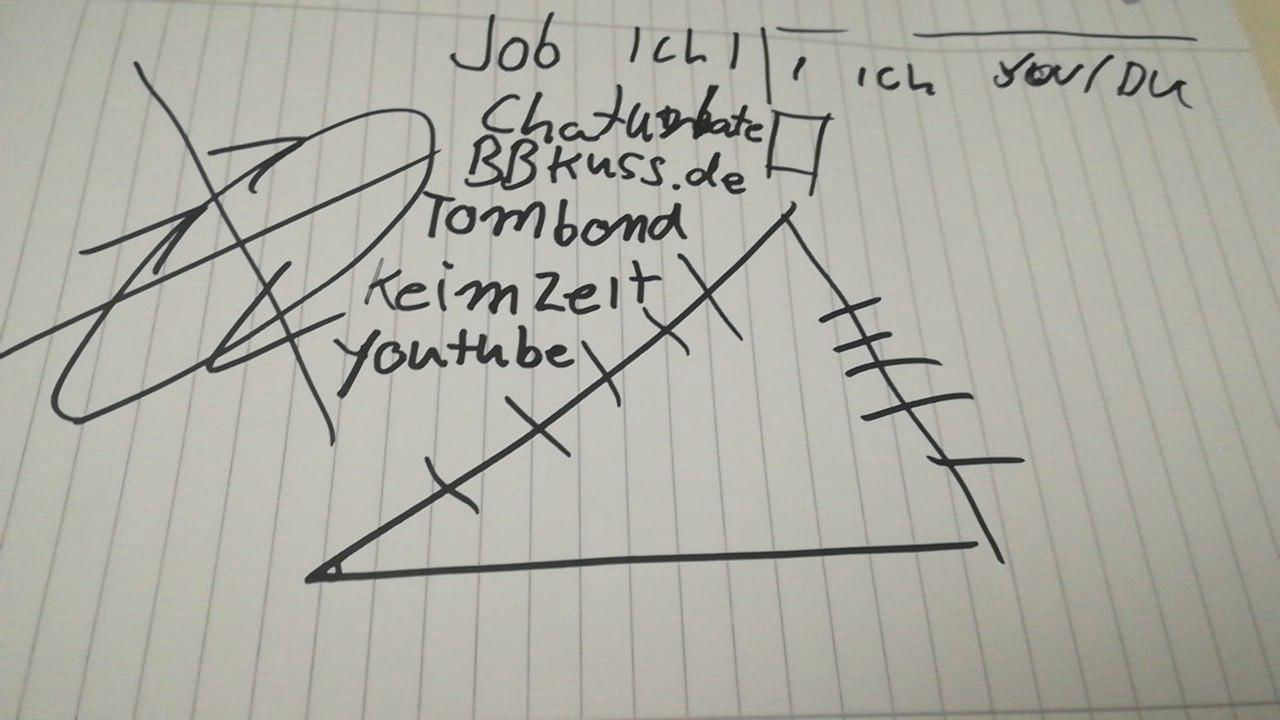 Job ich | | ı ich you/Du
Chaturbate
BBKuss.de
Tombond
Keimzeit
youtube